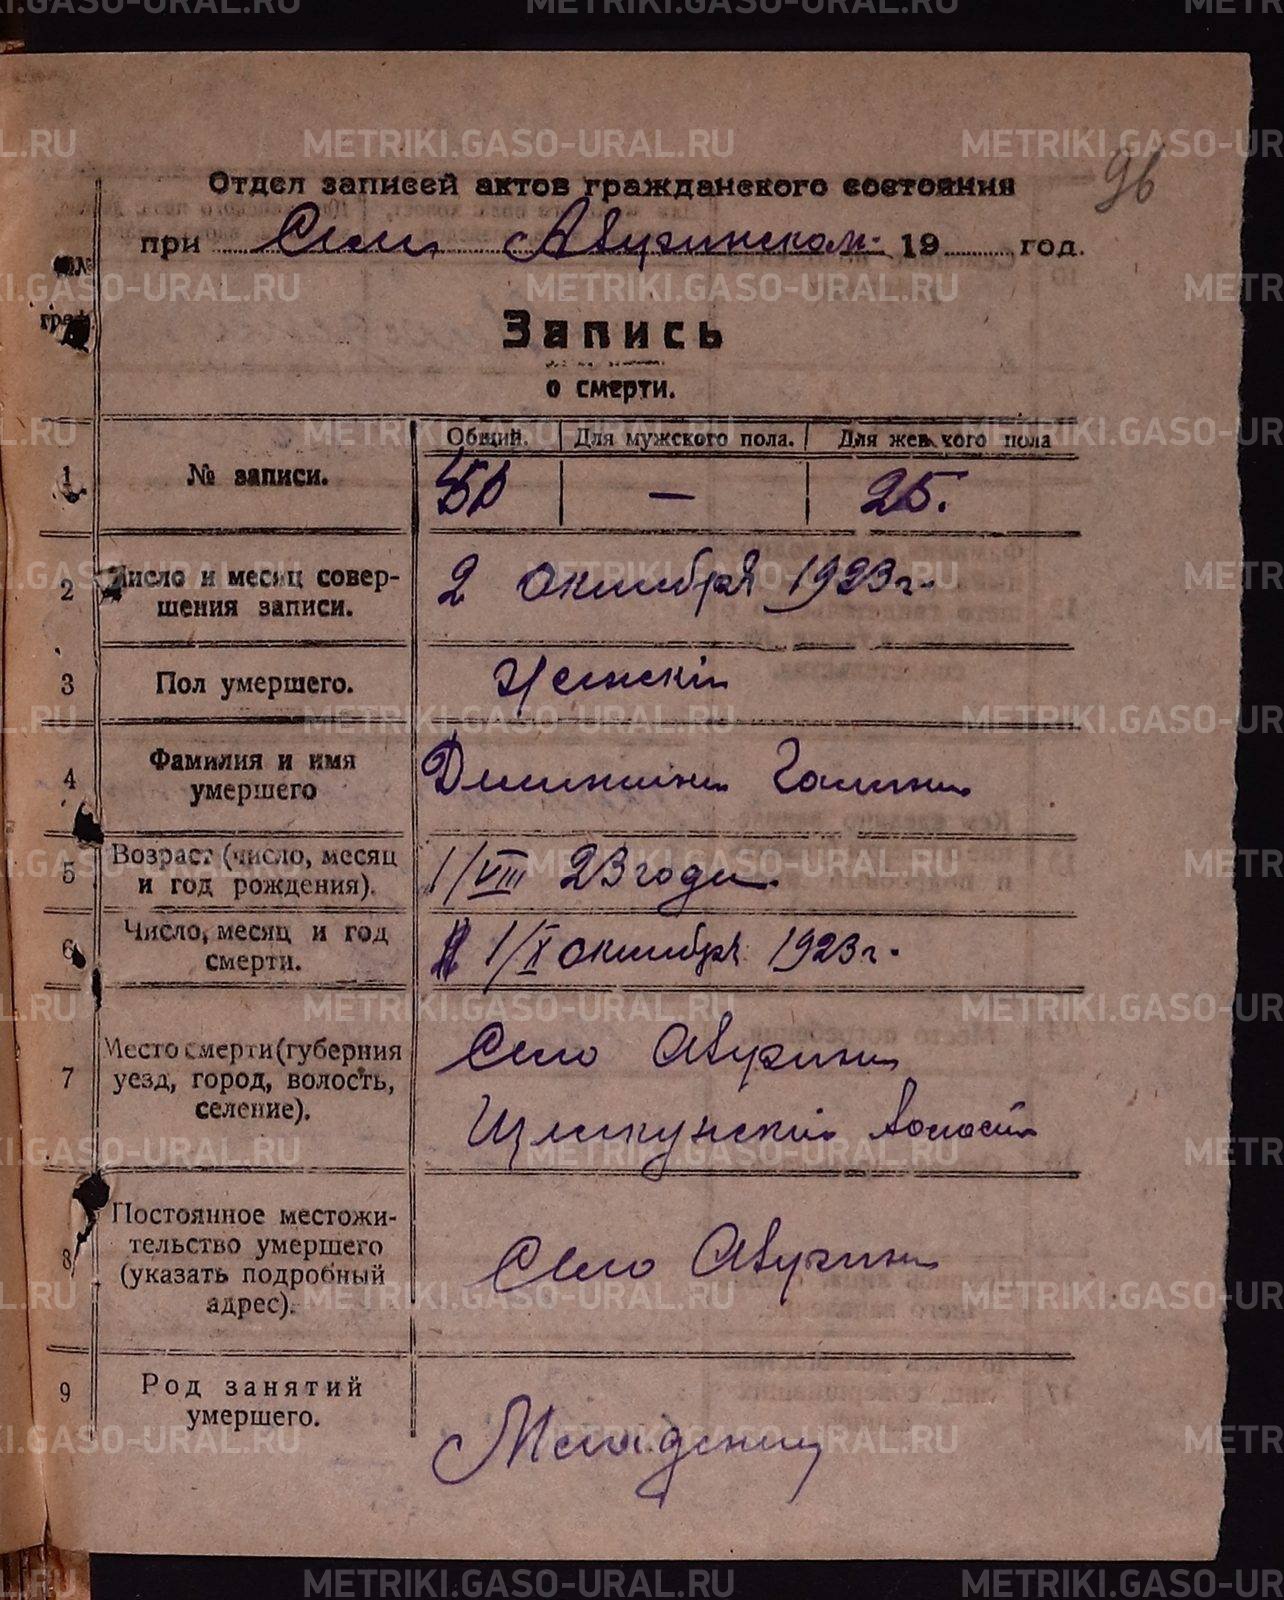 METRIKI.GASO-URAL.RU
96
Отдел записей актов гражданского состояния
при Селе Авуринском 19 год.
№
граф.
Запись
о смерти.
Общий. Для мужского пола. Для женского пола
1 № записи. 50 — 25.
2 Число и месяц совер-
шения записи. 2 октября 1923 г.
3 Пол умершего. Женский
4 Фамилия и имя
умершего Галина
5 Возраст (число, месяц
и год рождения). 1/VIII 23 года.
6 Число, месяц и год
смерти. 1/X октября 1923 г.
7 Место смерти (губерния
уезд, город, волость,
селение). Село
волости
8 Постоянное местожи-
тельство умершего
(указать подробный
адрес). Село
9 Род занятий
умершего. Младенец